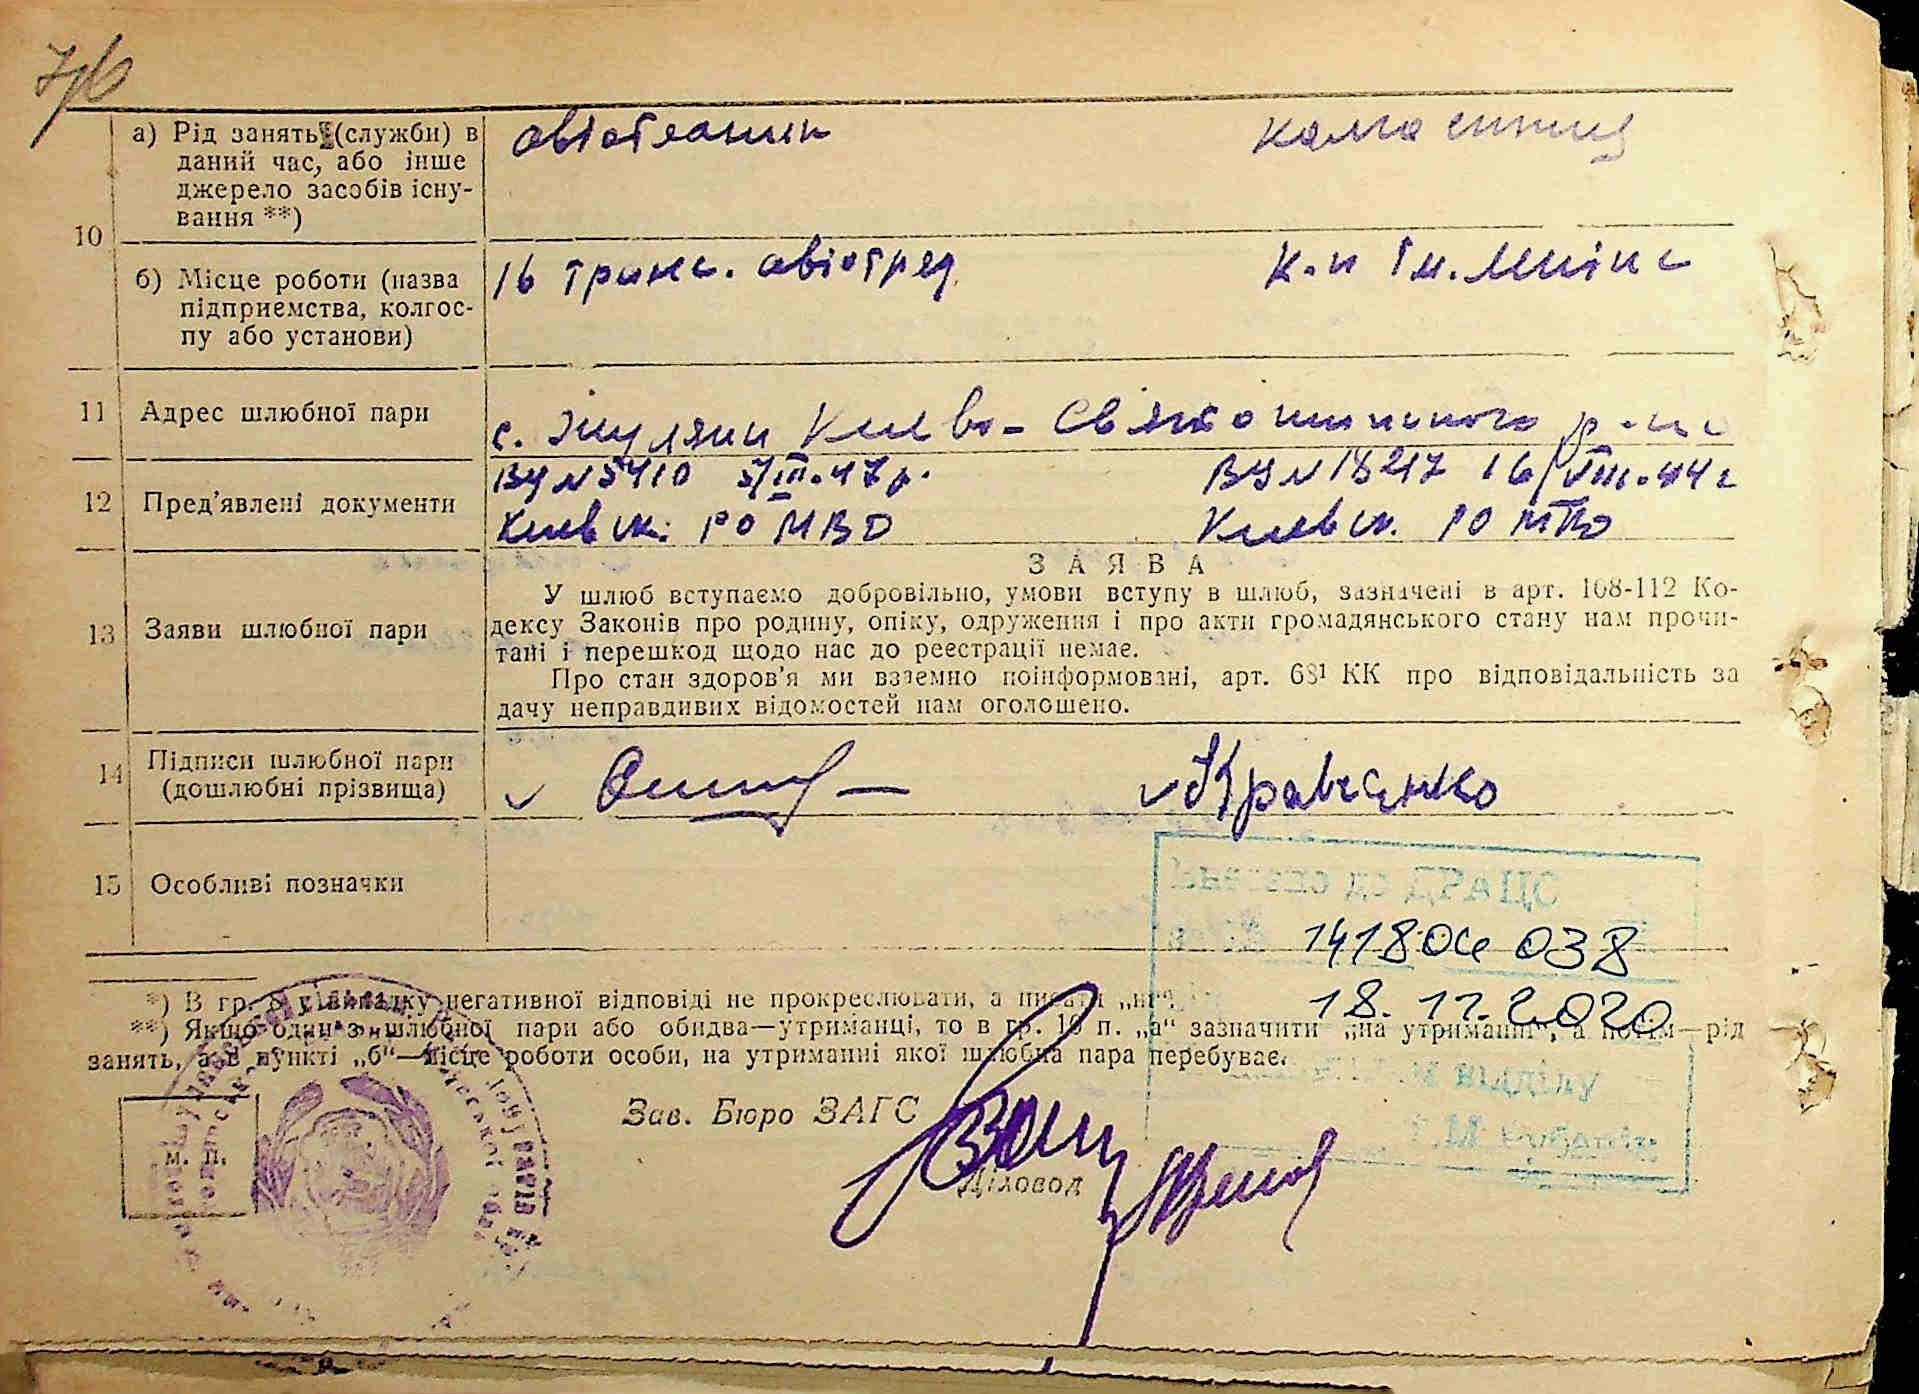 7/6
а) Рід занять (служби) в
даний час, або інше
джерело засобів існу-
вання **)
авіотехник
колгоспниц
10
б) Місце роботи (назва
підприємства, колгос-
пу або установи)
16 транс. авіотряд
К-п ім.
11 Адрес шлюбної пари
с. Жуляни Києво-Святошинського р-ну
12 Пред'явлені документи
ВУ № 5410 5/III-47р.
ВУ № 18217 16/VIII-44 г
Киевск. РО МВД
Киевск. РО
13 Заяви шлюбної пари
ЗАЯВА
У шлюб вступаємо добровільно, умови вступу в шлюб, зазначені в арт. 108-112 Ко-
дексу Законів про родину, опіку, одруження і про акти громадянського стану нам прочи-
тані і перешкод щодо нас до реєстрації немає.
Про стан здоров'я ми взаємно поінформовані, арт. 68¹ КК про відповідальність за
дачу неправдивих відомостей нам оголошено.
14 Підписи шлюбної пари
(дошлюбні прізвища)
Кравченко
15 Особливі позначки
до ДРАЦС
038
18.12.2020
відділу
*) В гр. 8 у випадку негативної відповіді не прокреслювати, а писати „ні".
**) Якщо один з шлюбної пари або обидва—утриманці, то в гр. 10 п. „а" зазначити „на утриманні", а потім—рід
занять, а в пункті „б"—місце роботи особи, на утриманні якої шлюбна пара перебуває.
м. п.
Зав. Бюро ЗАГС
Діловод